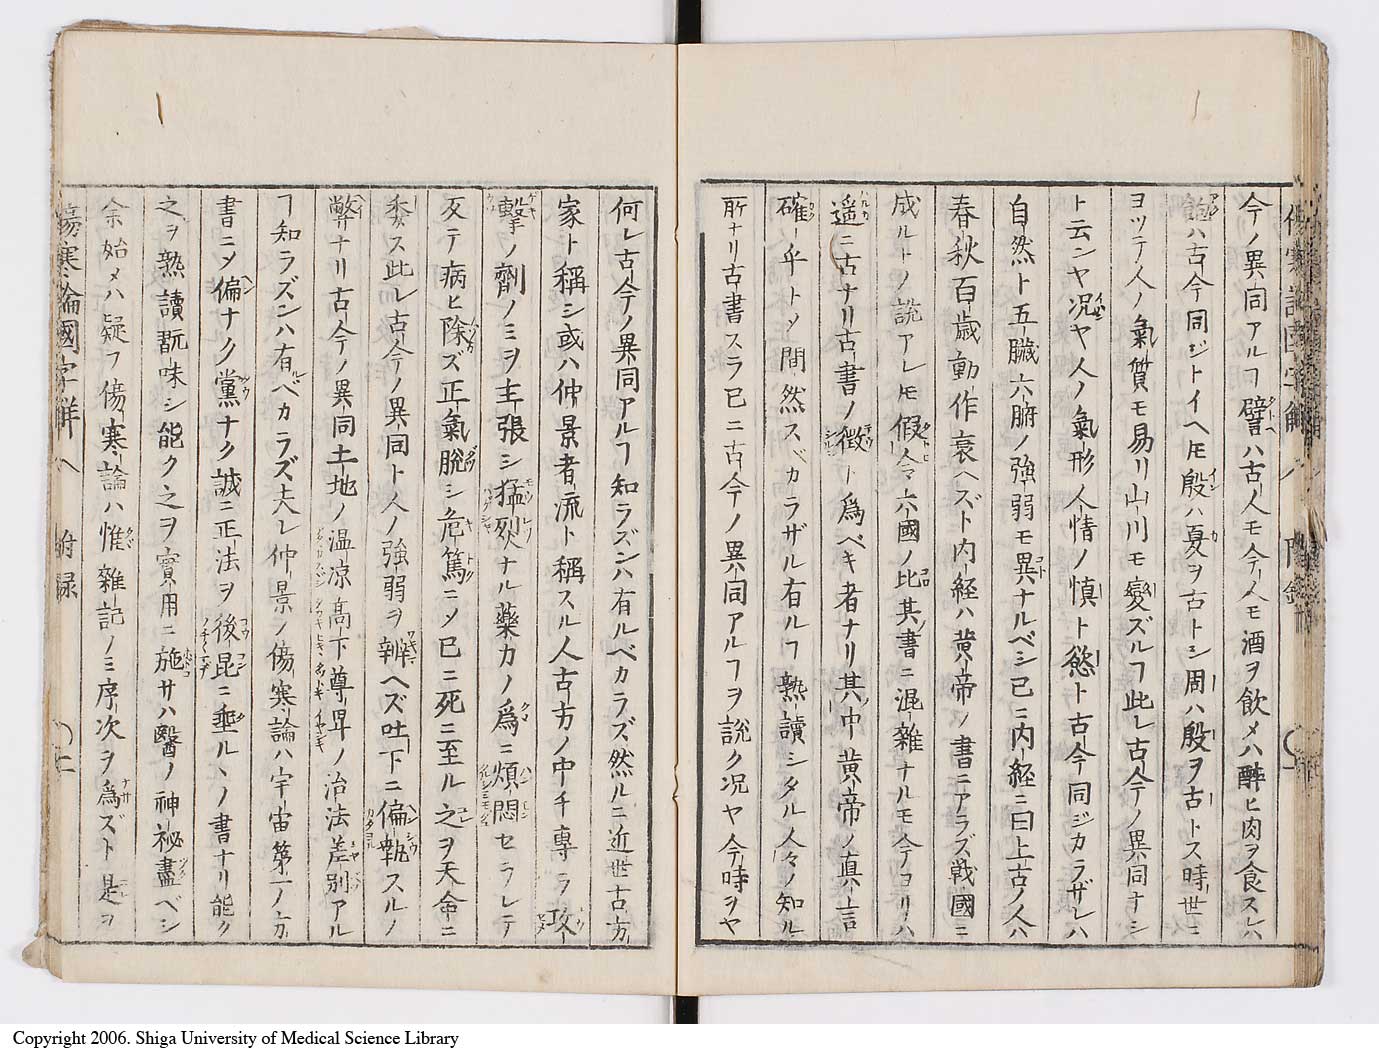 今ノ異同アルヿ譬ハ古人モ今人モ酒ヲ飲メハ醉ヒ肉ヲ食スレハ
飽ハ古今同ジトイヘ𪜈殷ハ夏ヲ古トシ周ハ殷ヲ古トス時世ニ
ヨツテ人ノ氣質モ易リ山川モ變ズルヿ此レ古今ノ異同ナシ
ト云ンヤ况ヤ人ノ氣形人情ノ慎ト慾ト古今同ジカラザレハ
自然ト五臓六腑ノ強弱モ異ナルベシ已ニ内経ニ曰上古ノ人ハ
春秋百歳動作衰ヘズト内経ハ黄帝ノ書ニアラズ戦國ニ
成ルトノ説アレ𪜈假令六國ノ比其書ニ混雜ナルモ今ヨリハ
遥ニ古ナリ古書ノ徴ト為ベキ者ナリ其中黄帝ノ眞言
確乎トメ間然スベカラザル有ルヿ熟讀シタル人々ノ知ル
所ナリ古書スラ已ニ古今ノ異同アルヿヲ説ク况ヤ今時ヲヤ
何レ古今ノ異同アルヿ知ラズンハ有ルベカラズ然ルニ近世古方
家ト稱シ或ハ仲景者流ト稱スル人古方ノ中チ專ラ攻
擊ノ劑ノミヲ主張シ猛烈ナル藥力ノ為ニ煩悶セラレテ
反テ病ヒ除ズ正氣脱シ危篤ニメ已ニ死ニ至ル之ヲ天命ニ
委ス此レ古今ノ異同ト人ノ強弱ヲ辨ヘズ吐下ニ偏執スルノ
弊ナリ古今ノ異同土地ノ温凉高下尊卑ノ治法差別アル
ヿ知ラズンハ有ベカラズ夫レ仲景ノ傷寒論ハ宇宙第一ノ方
書ニメ偏ナク黨ナク誠ニ正法ヲ後昆ニ垂ルヽノ書ナリ能ク
之ヲ熟讀翫味シ能ク之ヲ實用ニ施サハ醫ノ神祕盡ベシ
余始メハ疑フ傷寒論ハ惟雜記ノミ序次ヲ為ズト是ヲ
傷寒論國字解 附録